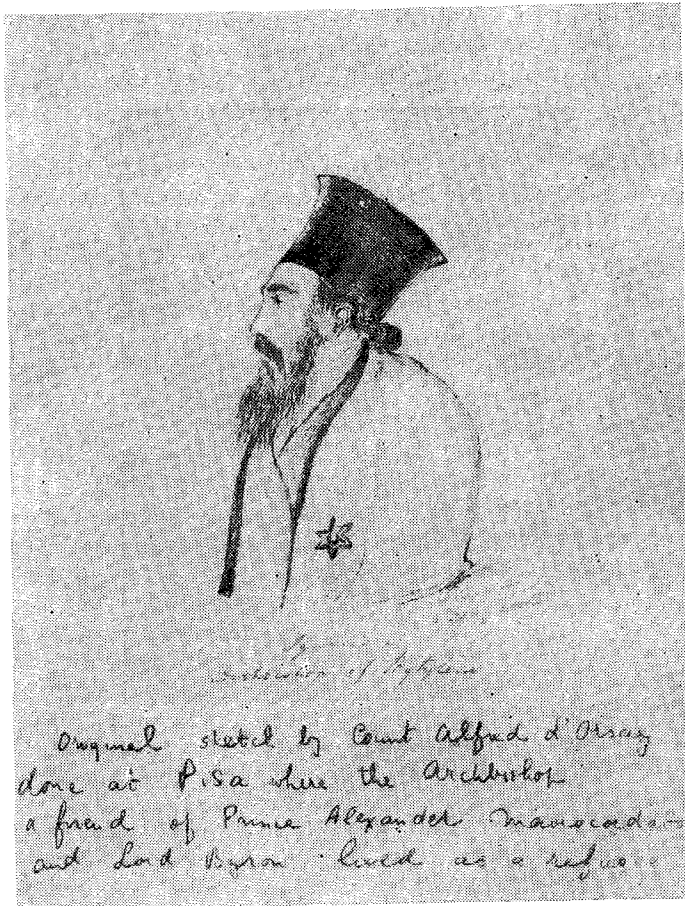 of
Original sketch by Count Alfred d'Orsay
done at Pisa where the Archbishop
a friend of Prince Alexander
and Lord Byron lived as a